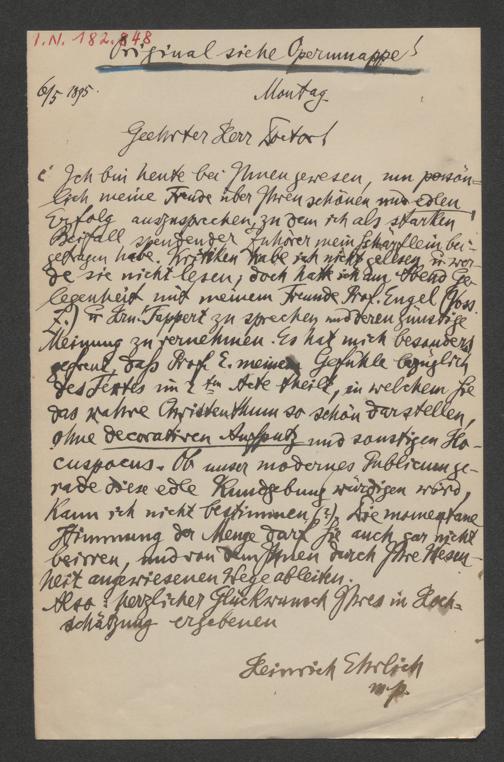 I.N. 182.848
Original siehe Opernmappe!
6/5 1895.
Montag
Geehrter Herr Doctor!
Ich bin heute bei Ihnen gewesen, um persön-
lich meine Freude über Ihren schönen und edlen
Erfolg auszusprechen, zu dem ich als starken
Beifall spendender Zuhörer mein Schärflein bei-
getragen habe. Kritiken habe ich nicht gelesen, u. wer-
de sie nicht lesen, doch hatte ich am Abend Ge-
legenheit mit meinem Freunde Prof. Engel (Voss.
Z.) u. Hrn. Tappert zu sprechen und deren günstige
Meinung zu vernehmen. Es hat mich besonders
gefreut, daß Prof. E. meine Gefühle bezüglich
des Textes im 2ten Acte theilt, in welchem Sie
das wahre Christenthum so schön darstellen,
ohne decorativen Aufputz und sonstigen Ho-
cuspocus. Ob unser modernes Publicum ge-
rade diese edle Kundgebung würdigen wird,
kann ich nicht bestimmen (?), Die momentane
Stimmung der Menge darf Sie auch gar nicht
beirren, und von dem Ihnen durch Ihre Wesen-
heit angewiesenen Wege ableiten.
Also: herzlicher Glückwunsch Ihres in Hoch-
schätzung ergebenen
Heinrich Ehrlich
m.p.